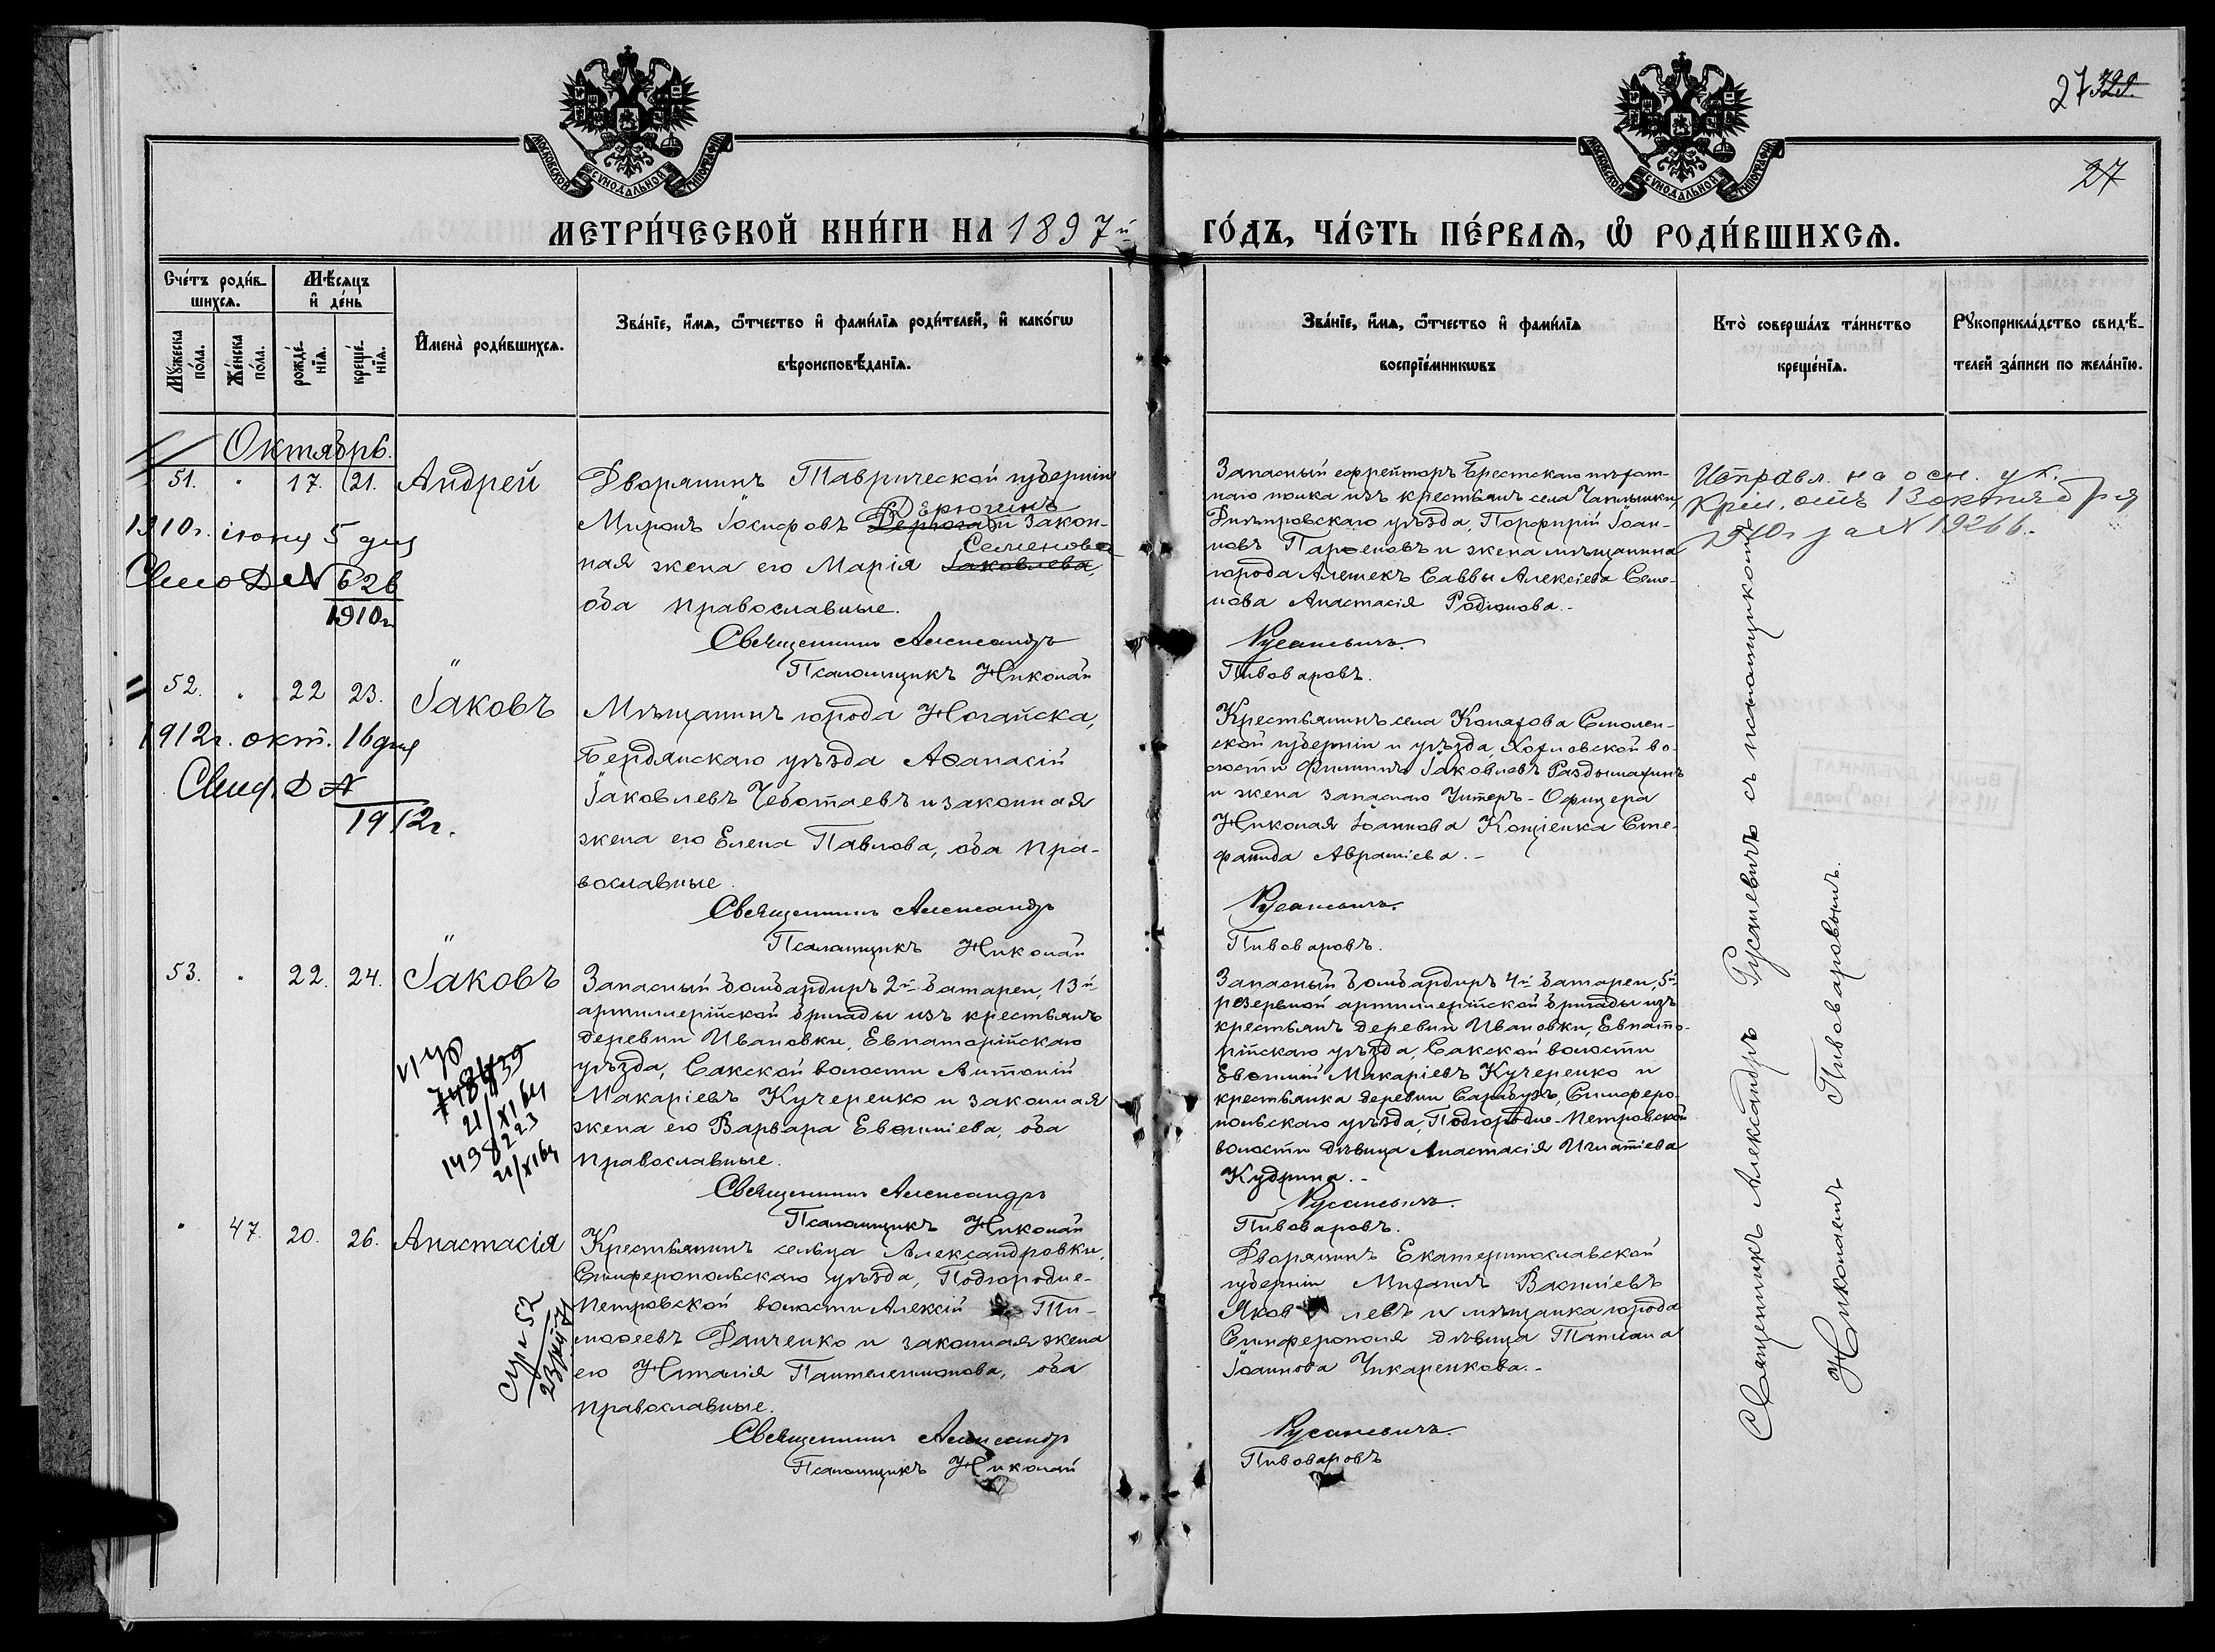 27 329.
27
МОСКОВСКОЙ СѴНОДАЛЬНОЙ ТИПОГРАФІИ
МОСКОВСКОЙ СѴНОДАЛЬНОЙ ТИПОГРАФІИ
МЕТРИ́ЧЕСКОЙ КНИ́ГИ НА 1897й
ГО́ДЪ, ЧА́СТЬ ПЕ́РВАѦ, Ѽ РОДИ́ВШИХСѦ.
Сче́тъ роди́в-
шихсѧ.
Мꙋ́жеска по́ла.
Же́нска по́ла.
Мѣ́сѧцъ
и҆ де́нь
рожде́-
нїѧ.
креще́-
нїѧ.
И҆мена̀ роди́вшихсѧ.
Зва́нїе, и҆́мѧ, ѻ҆́тчество и҆ фами́лїѧ роди́телей, и҆ како́гѡ
вѣроисповѣ́данїѧ.
Зва́нїе, и҆́мѧ, ѻ҆́тчество и҆ фами́лїѧ
воспрїе́мникѡвъ
Кто̀ соверша́лъ та́инство
креще́нїѧ.
Рꙋкоприкла́дство свидѣ́-
телей за́писи по жела́нїю.
Октябрь.
51. " 17. 21. Андрей
1910г. іюня 5 дня
Свид № 626
1910г.
Дворянинъ Таврической губерніи
Дерюгинъ
Миронъ Іосифовъ Дерюга и закон-
Семенова
ная жена его Марія Іаковлева,
оба православные.
Священникъ Александръ
Псаломщикъ Николай
Запасный ефрейторъ Брестскаго пѣхот-
наго полка изъ крестьянъ села Чаплынки,
Днѣпровскаго уѣзда, Порфирій Іоан-
новъ Парѳеновъ и жена мѣщанина
города Алешекъ Саввы Алексіева Семе-
нова Анастасія Родіонова.-
Русаневичъ.
Пивоваровъ.
Исправл. на осн. ук.
1910г за № 19266.
52. " 22 23. Іаковъ
1912г. окт. 16 дня
Свид. №
1912г.
Мѣщанинъ города Ногайска,
Бердянскаго уѣзда Аѳанасій
Іаковлевъ Чеботаевъ и законная
жена его Елена Павлова, оба пра-
вославные.
Священникъ Александръ
Псаломщикъ Николай
Крестьянинъ села Смолен-
ской губерніи и уѣзда, во-
лости Филиппъ Іаковлевъ
и жена запаснаго Унтеръ-Офицера
Николая Іоаннова Коціенка Сте-
фанида Авраміева.-
Русаневичъ.
Пивоваровъ.
53. " 22. 24. Іаковъ
21/XI 64
1498223
21/XI 64
Запасный бомбардиръ 2й батареи, 13й
артиллерійской бригады изъ крестьянъ
деревни Ивановки, Евпаторійскаго
уѣзда, Сакской волости Антоній
Макаріевъ Кучеренко и законная
жена его Варвара Евѳиміева, оба
православные.
Священникъ Александръ
Псаломщикъ Николай
Запасный бомбардиръ 4й батареи, 5й
резервной артиллерійской бригады изъ
крестьянъ деревни Ивановки, Евпато-
рійскаго уѣзда, Сакской волости
Евѳимій Макаріевъ Кучеренко и
крестьянка деревни Сарабузъ, Симферо-
польскаго уѣзда, Подгородне-Петровской
волости дѣвица Анастасія Игнатіева
Кудрина.-
Русаневичъ.
Пивоваровъ.
" 47. 20. 26. Анастасія
Крестьянинъ сельца Александровки,
Симферопольскаго уѣзда, Подгородне-
Петровской волости Алексій Ти-
моѳеевъ Данченко и законная жена
его Наталія Пантелеимонова, оба
православные.
Священникъ Александръ
Псаломщикъ Николай
Дворянинъ Екатеринославской
губерніи Михаилъ Василіевъ
Яковлевъ и мѣщанка города
Симферополя дѣвица Татіана
Іоаннова Чикаренкова.-
Русаневичъ.
Пивоваровъ
Священникъ Александръ Русаневичъ съ псаломщикомъ
Николаемъ Пивоваровымъ.